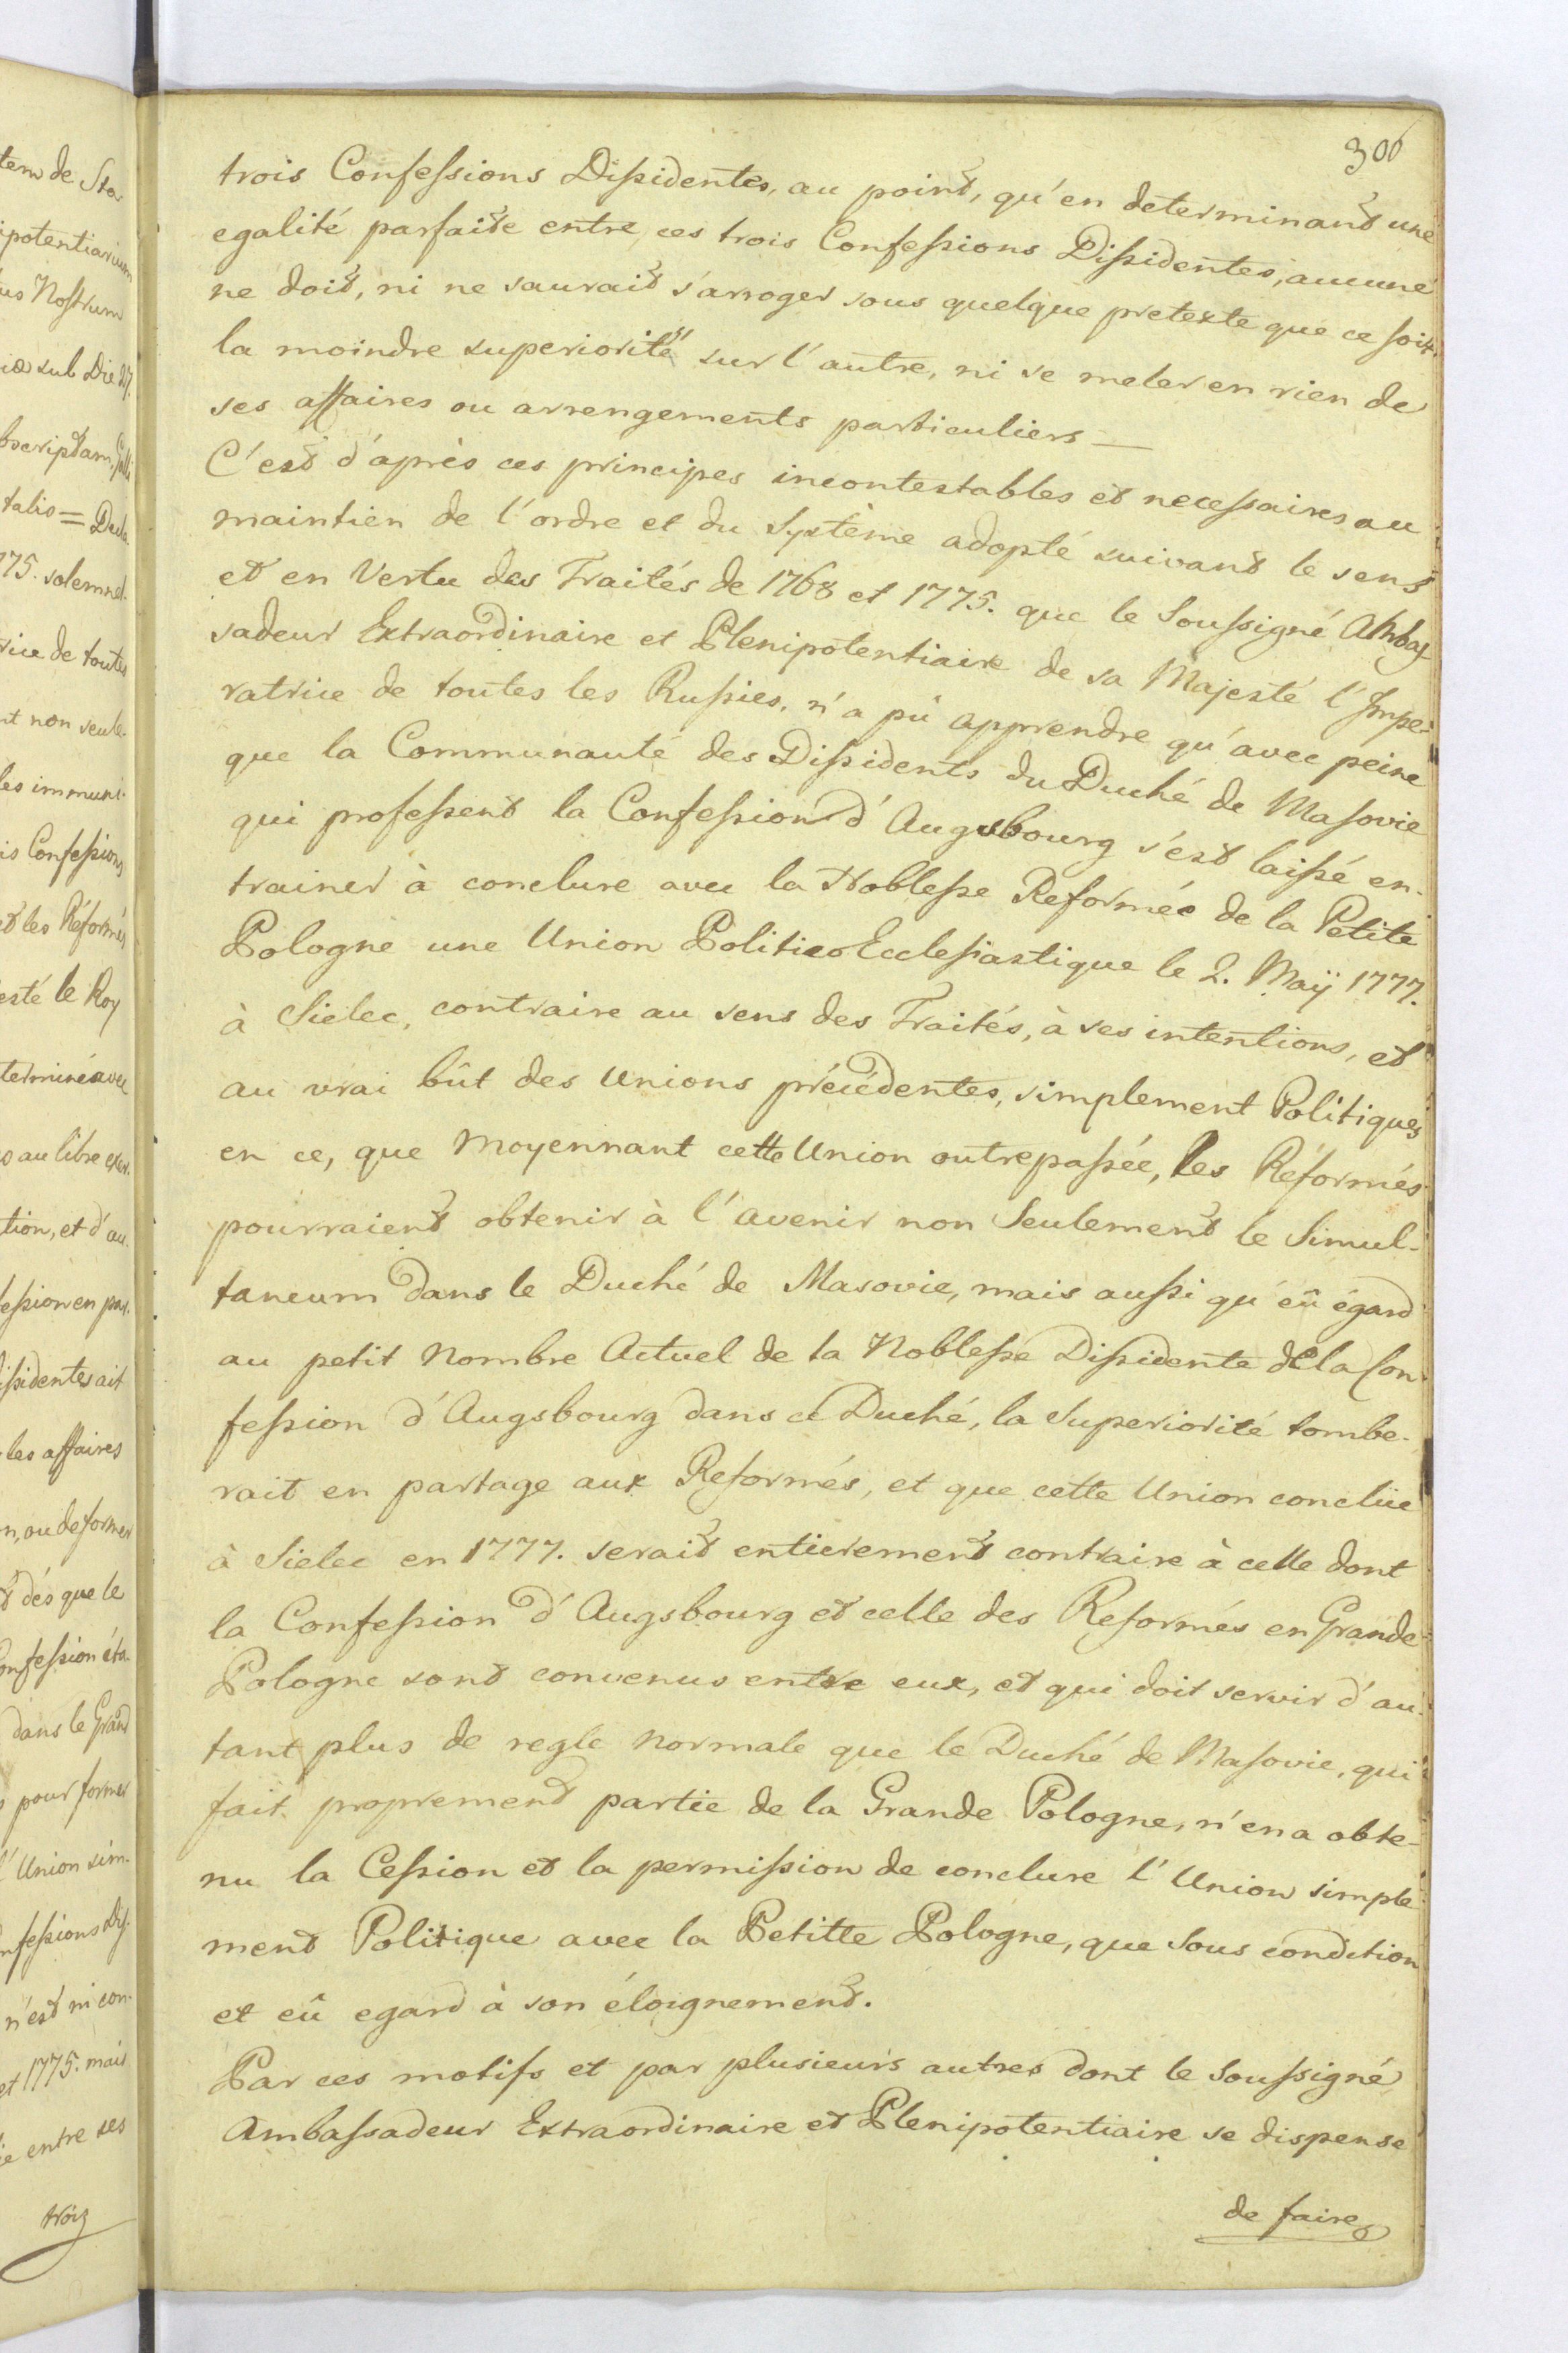 tem de Sta-
ipotentiarium
us Nostrum
sub Die 27.
bscriptam
talis = Decla
775. solemnel-
rice de toutes
nt non seule-
les immuni-
is Confessions
et les Réformés
esté le Roy
terminé avec
s au libre exer-
tion, et d'au-
fession en par-
issidentes ait
les affaires
n, ou de former
t dés que le
onfession éta-
dans le Grand
s pour former
l'Union sim-
nfessions Dis-
n'est ni con-
et 1775. mais
ie entre ses
trois
306
trois Confessions Dissidentes, au point, qu'en determinant une
egalité parfaite entre ces trois Confessions Dissidentes, aucune
ne doit, ni ne saurait s'arroger sous quelque pretexte que ce soit
la moindre superiorité sur l'autre, ni se meler en rien de
ses affaires ou arrengements particuliers —
C'est d'après ces principes incontestables et necessaires au
maintien de l'ordre et du Système adopté suivant le sens
et en Vertu des Traités de 1768 et 1775. que le Soussigné Ambas-
sadeur Extraordinaire et Plenipotentiaire de sa Majesté l'Impe-
ratrice de toutes les Russies, n'a pû apprendre qu'avec peine
que la Communauté des Dissidents du Duché de Masovie
qui professent la Confession d'Augsbourg s'est laissé en-
trainer à conclure avec la Noblesse Reformée de la Petite
Pologne une Union Politico Ecclesiastique le 2. Maÿ 1777.
à Sielec, contraire au sens des Traités, à ses intentions, et
au vrai bût des Unions précédentes, simplement Politiques
en ce, que moyennant cette Union outrepassée, les Réformés
pourraient obtenir à l'avenir non Seulement le Simul-
taneum dans le Duché de Masovie, mais aussi qu'eû égard
au petit Nombre Actuel de la Noblesse Dissidente de la Con-
fession d'Augsbourg dans ce Duché, la Superiorité tombe-
rait en partage aux Reformés, et que cette Union conclüe
à Sielec en 1777. serait entierement contraire à celle dont
la Confession d'Augsbourg et celle des Reformés en Grande-
Pologne sont convenus entre eux, et qui doit servir d'au-
tant plus de regle normale que le Duché de Masovie, qui
fait proprement partie de la Grande Pologne, n'en a obte-
nu la Cession et la permission de conclure l'Union simple
ment Politique avec la Petitte Pologne, que sous condition
et eû egard à son éloignement.
Par ces motifs et par plusieurs autres dont le Soussigné
Ambassadeur Extraordinaire et Plenipotentiaire se dispense
de faire